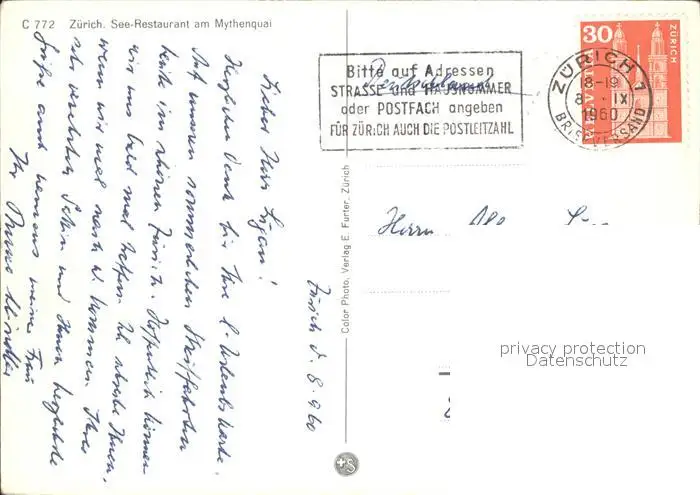 C 772 Zürich. See-Restaurant am Mythenquai
Zürich d. 8.9.60
Lieber Herr
Herzlichen Dank für Ihre l. Urlaubskarte.
Auf unseren sommerlichen Streifahrten
heute im schönen Zürich. Hoffentlich können
wir uns bald mal treffen. Ich schreibe Ihnen,
wenn wir mal nach W. kommen. Ihrer
sehr verehrten und Ihnen herzliche
Grüße auch namens meiner Frau
Ihr
Color Photo, Verlag E. Furter, Zürich
+S
Bitte auf Adressen
STRASSE und HAUSNUMMER
oder POSTFACH angeben
FÜR ZÜRICH AUCH DIE POSTLEITZAHL
Deutschland
30
HELVETIA
ZÜRICH
ZÜRICH 1
8-19
8. IX
1960
BRIEFVERSAND
Herrn
privacy protection
Datenschutz